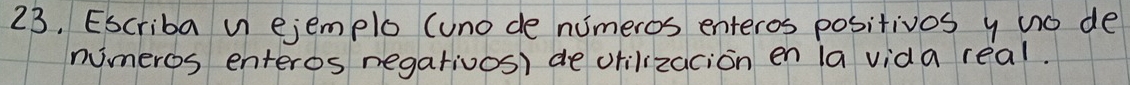 23. Escriba un ejemplo (uno de números enteros positivos y uno de
números enteros negativos) de utilización en la vida real.